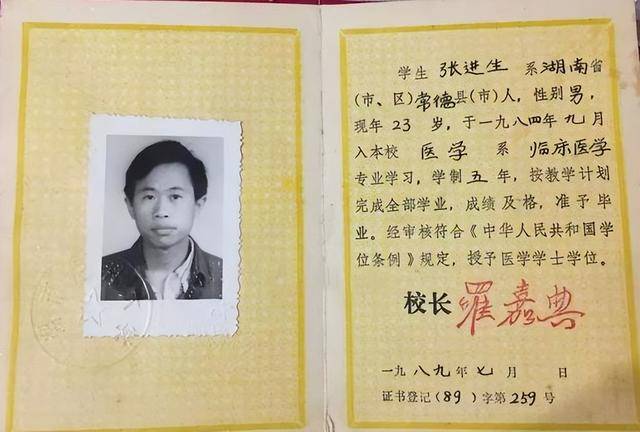 学生 张进生 系湖南省
(市、区)常德县(市)人，性别男，
现年23岁，于一九八四年九月
入本校 医学 系 临床医学
专业学习，学制五年，按教学计划
完成全部学业，成绩及格，准予毕
业。经审核符合《中华人民共和国学
位条例》规定，授予医学学士学位。
校长 罗嘉典
一九八九年七月 日
证书登记(89)字第259号